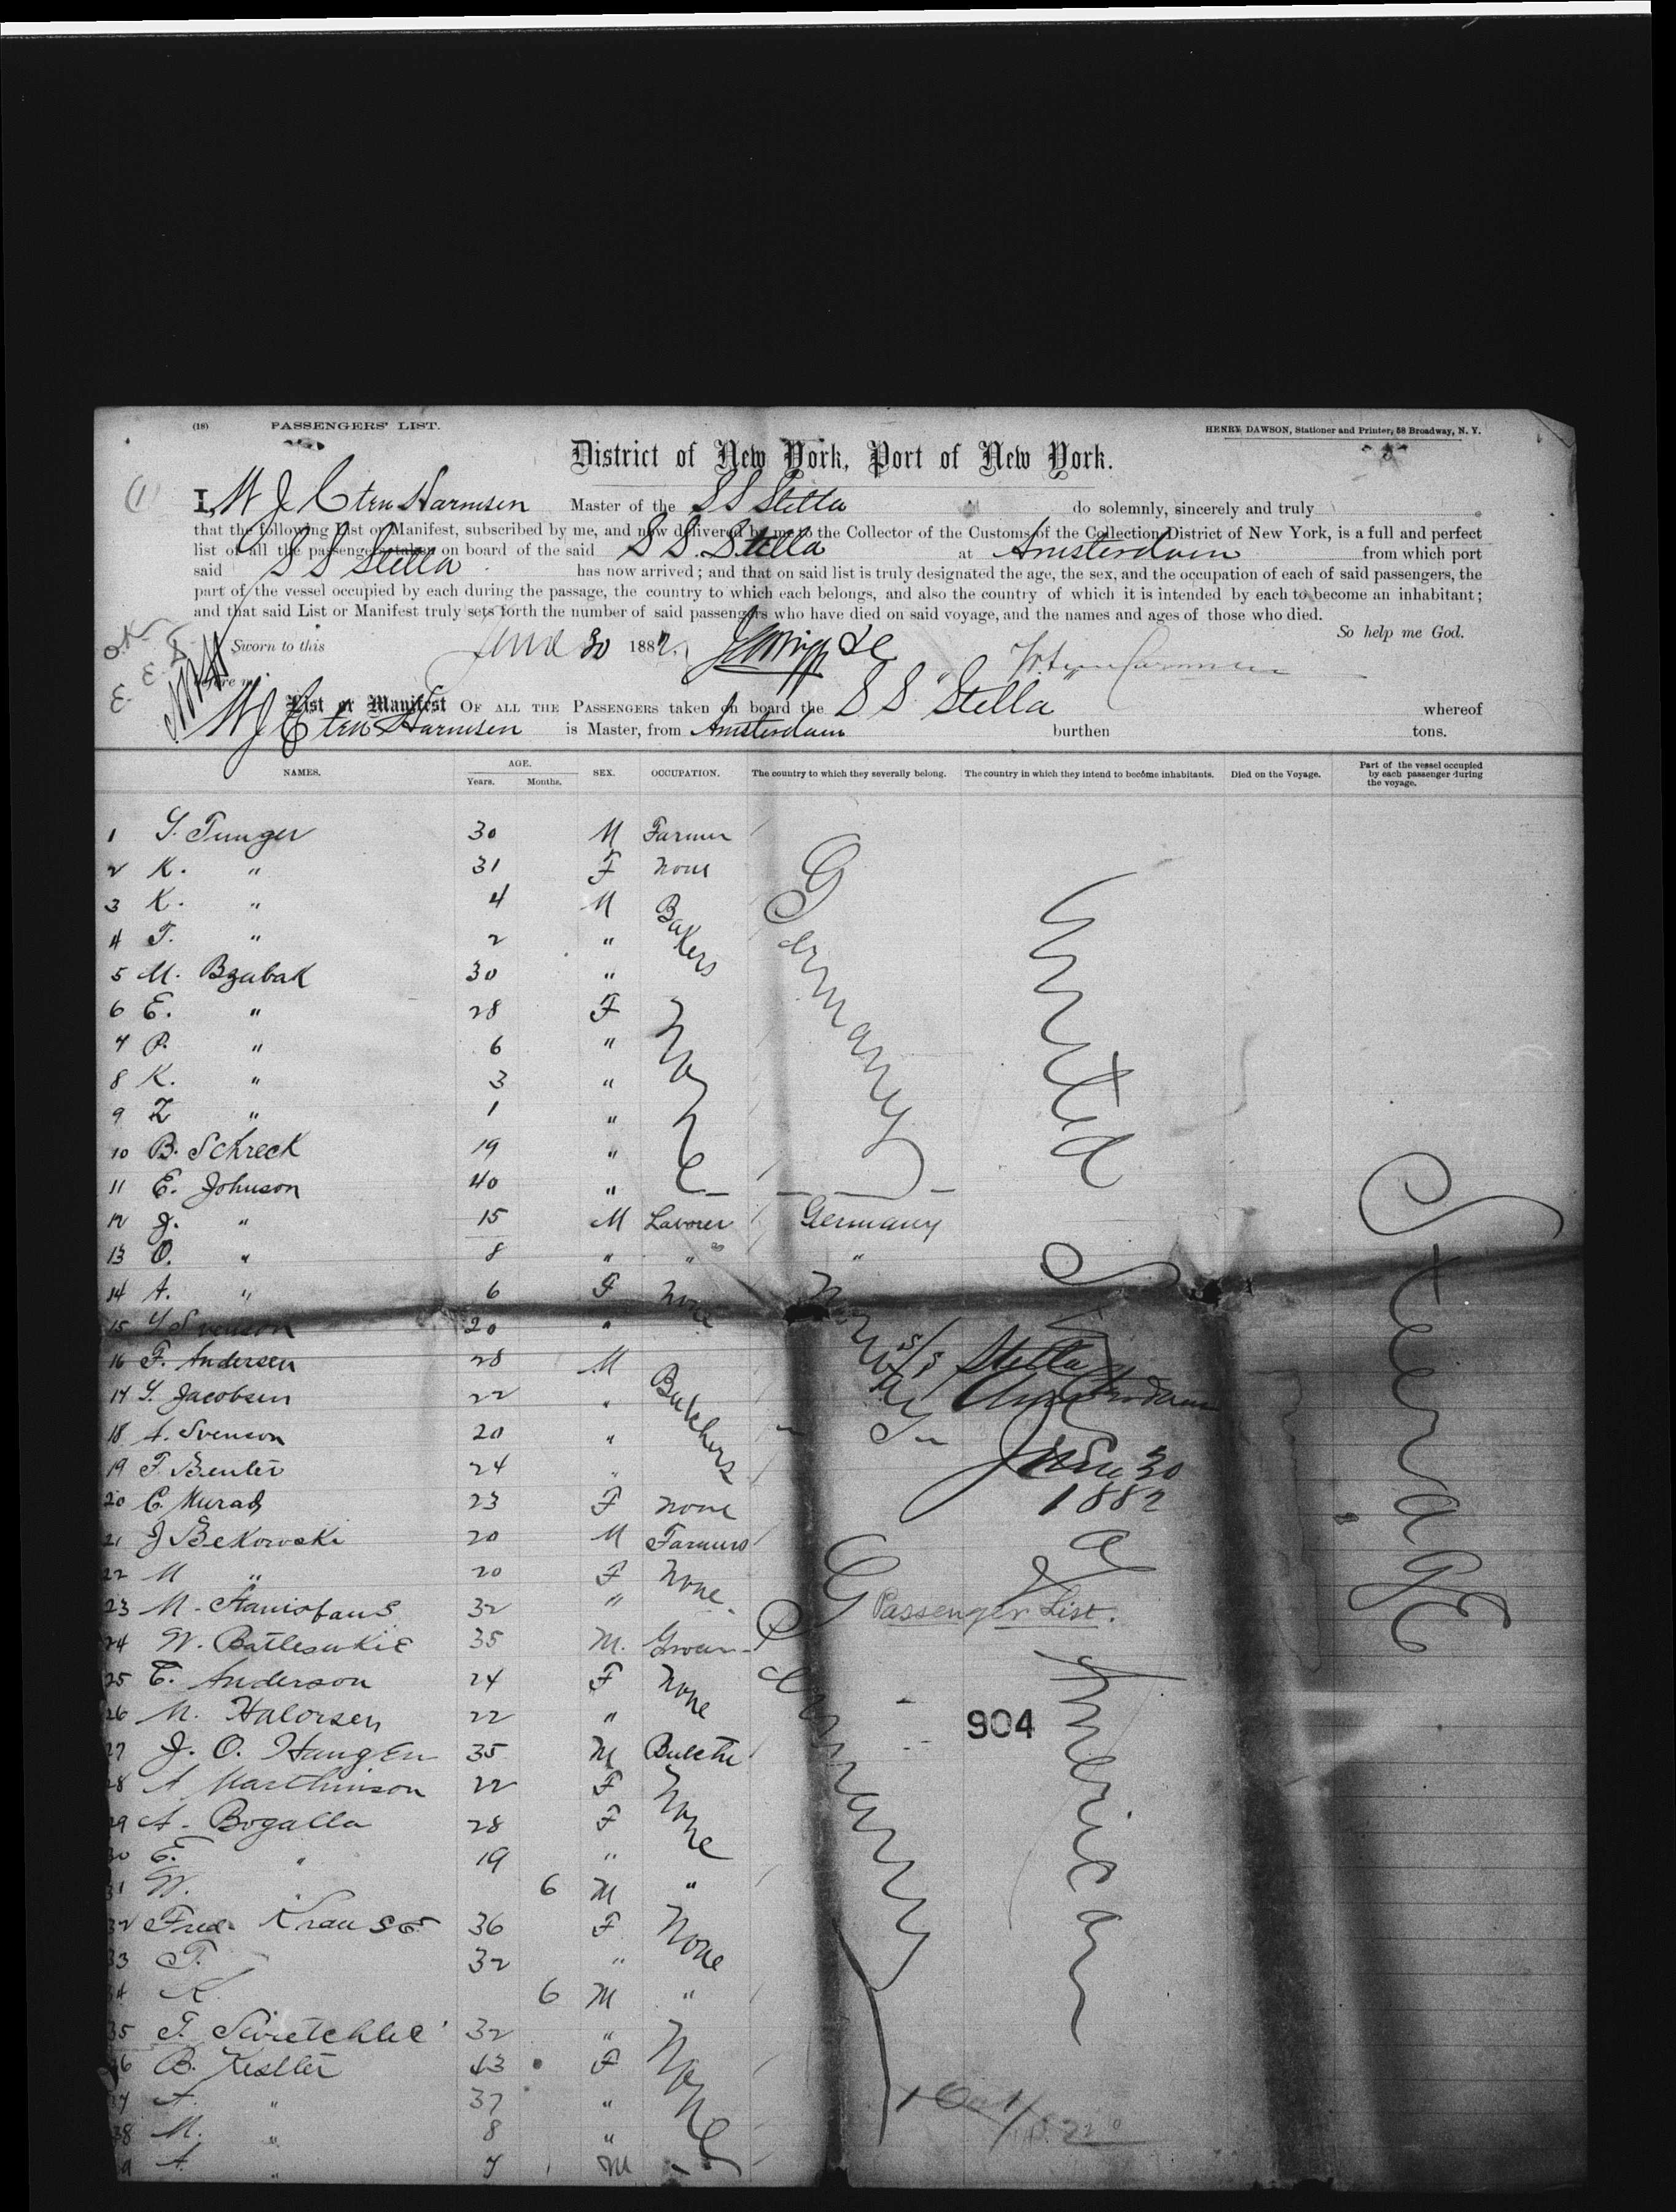 (18) PASSENGERS' LIST. HENRY DAWSON, Stationer and Printer, 58 Broadway, N. Y.
District of New York, Port of New York.
(1)
I, W J C ten Harmsen Master of the S S Stella do solemnly, sincerely and truly
that the following List or Manifest, subscribed by me, and now delivered by me to the Collector of the Customs of the Collection District of New York, is a full and perfect
list of all the passengers taken on board of the said S S. Stella at Amsterdam from which port
said S S Stella has now arrived; and that on said list is truly designated the age, the sex, and the occupation of each of said passengers, the
part of the vessel occupied by each during the passage, the country to which each belongs, and also the country of which it is intended by each to become an inhabitant;
and that said List or Manifest truly sets forth the number of said passengers who have died on said voyage, and the names and ages of those who died.
So help me God.
Sworn to this June 30 1882.
before me
List or Manifest OF ALL THE PASSENGERS taken on board the S S "Stella" whereof
W J C ten Harmsen is Master, from Amsterdam burthen tons.
NAMES. AGE. Years. Months. SEX. OCCUPATION. The country to which they severally belong. The country in which they intend to become inhabitants. Died on the Voyage. Part of the vessel occupied by each passenger during the voyage.
1 Y. Tunger 30 M Farmer
2 K. " 31 F none
3 K. " 4 M Bakers
4 T. " 2 "
5 M. Bzubak 30 "
6 E. " 28 F None
7 P. " 6 "
8 K. " 3 "
9 Z " 1 "
10 B. Schreck 19 "
11 E. Johnson 40 "
Germany
12 J. " 15 M Laborer Germany
13 O. " 8 " " "
14 A. " 6 F None Norway
15 Y Svenson 20 "
16 F. Andersen 28 M Butchers
17 Y. Jacobsen 22 "
18 A. Svenson 20 "
19 F. Benter 24 "
20 C. Murads 23 F none
21 J Bekowski 20 M Farmers
22 M " 20 F None
23 M. Stanisfaus 32 "
24 W. Batleswkie 35 M. Grocer
25 C. Anderson 24 F None
26 M. Halorsen 22 "
27 J. O. Haugen 35 M Butche
28 A Marthinson 22 F None
29 A. Bogalla 28 F
30 E. " 19 "
31 W. " 6 M "
32 Fred. Krause 36 F None
33 F. 32 "
34 K 6 M "
35 F. Swietchlie 32 "
36 B. Kestler 43 F None
37 A. " 37 "
38 M. " 8 "
39 A. " 7 M
Germany
United States of America
Steerage
s/s Stella
Amsterdam
June 30
1882
Passenger List.
904